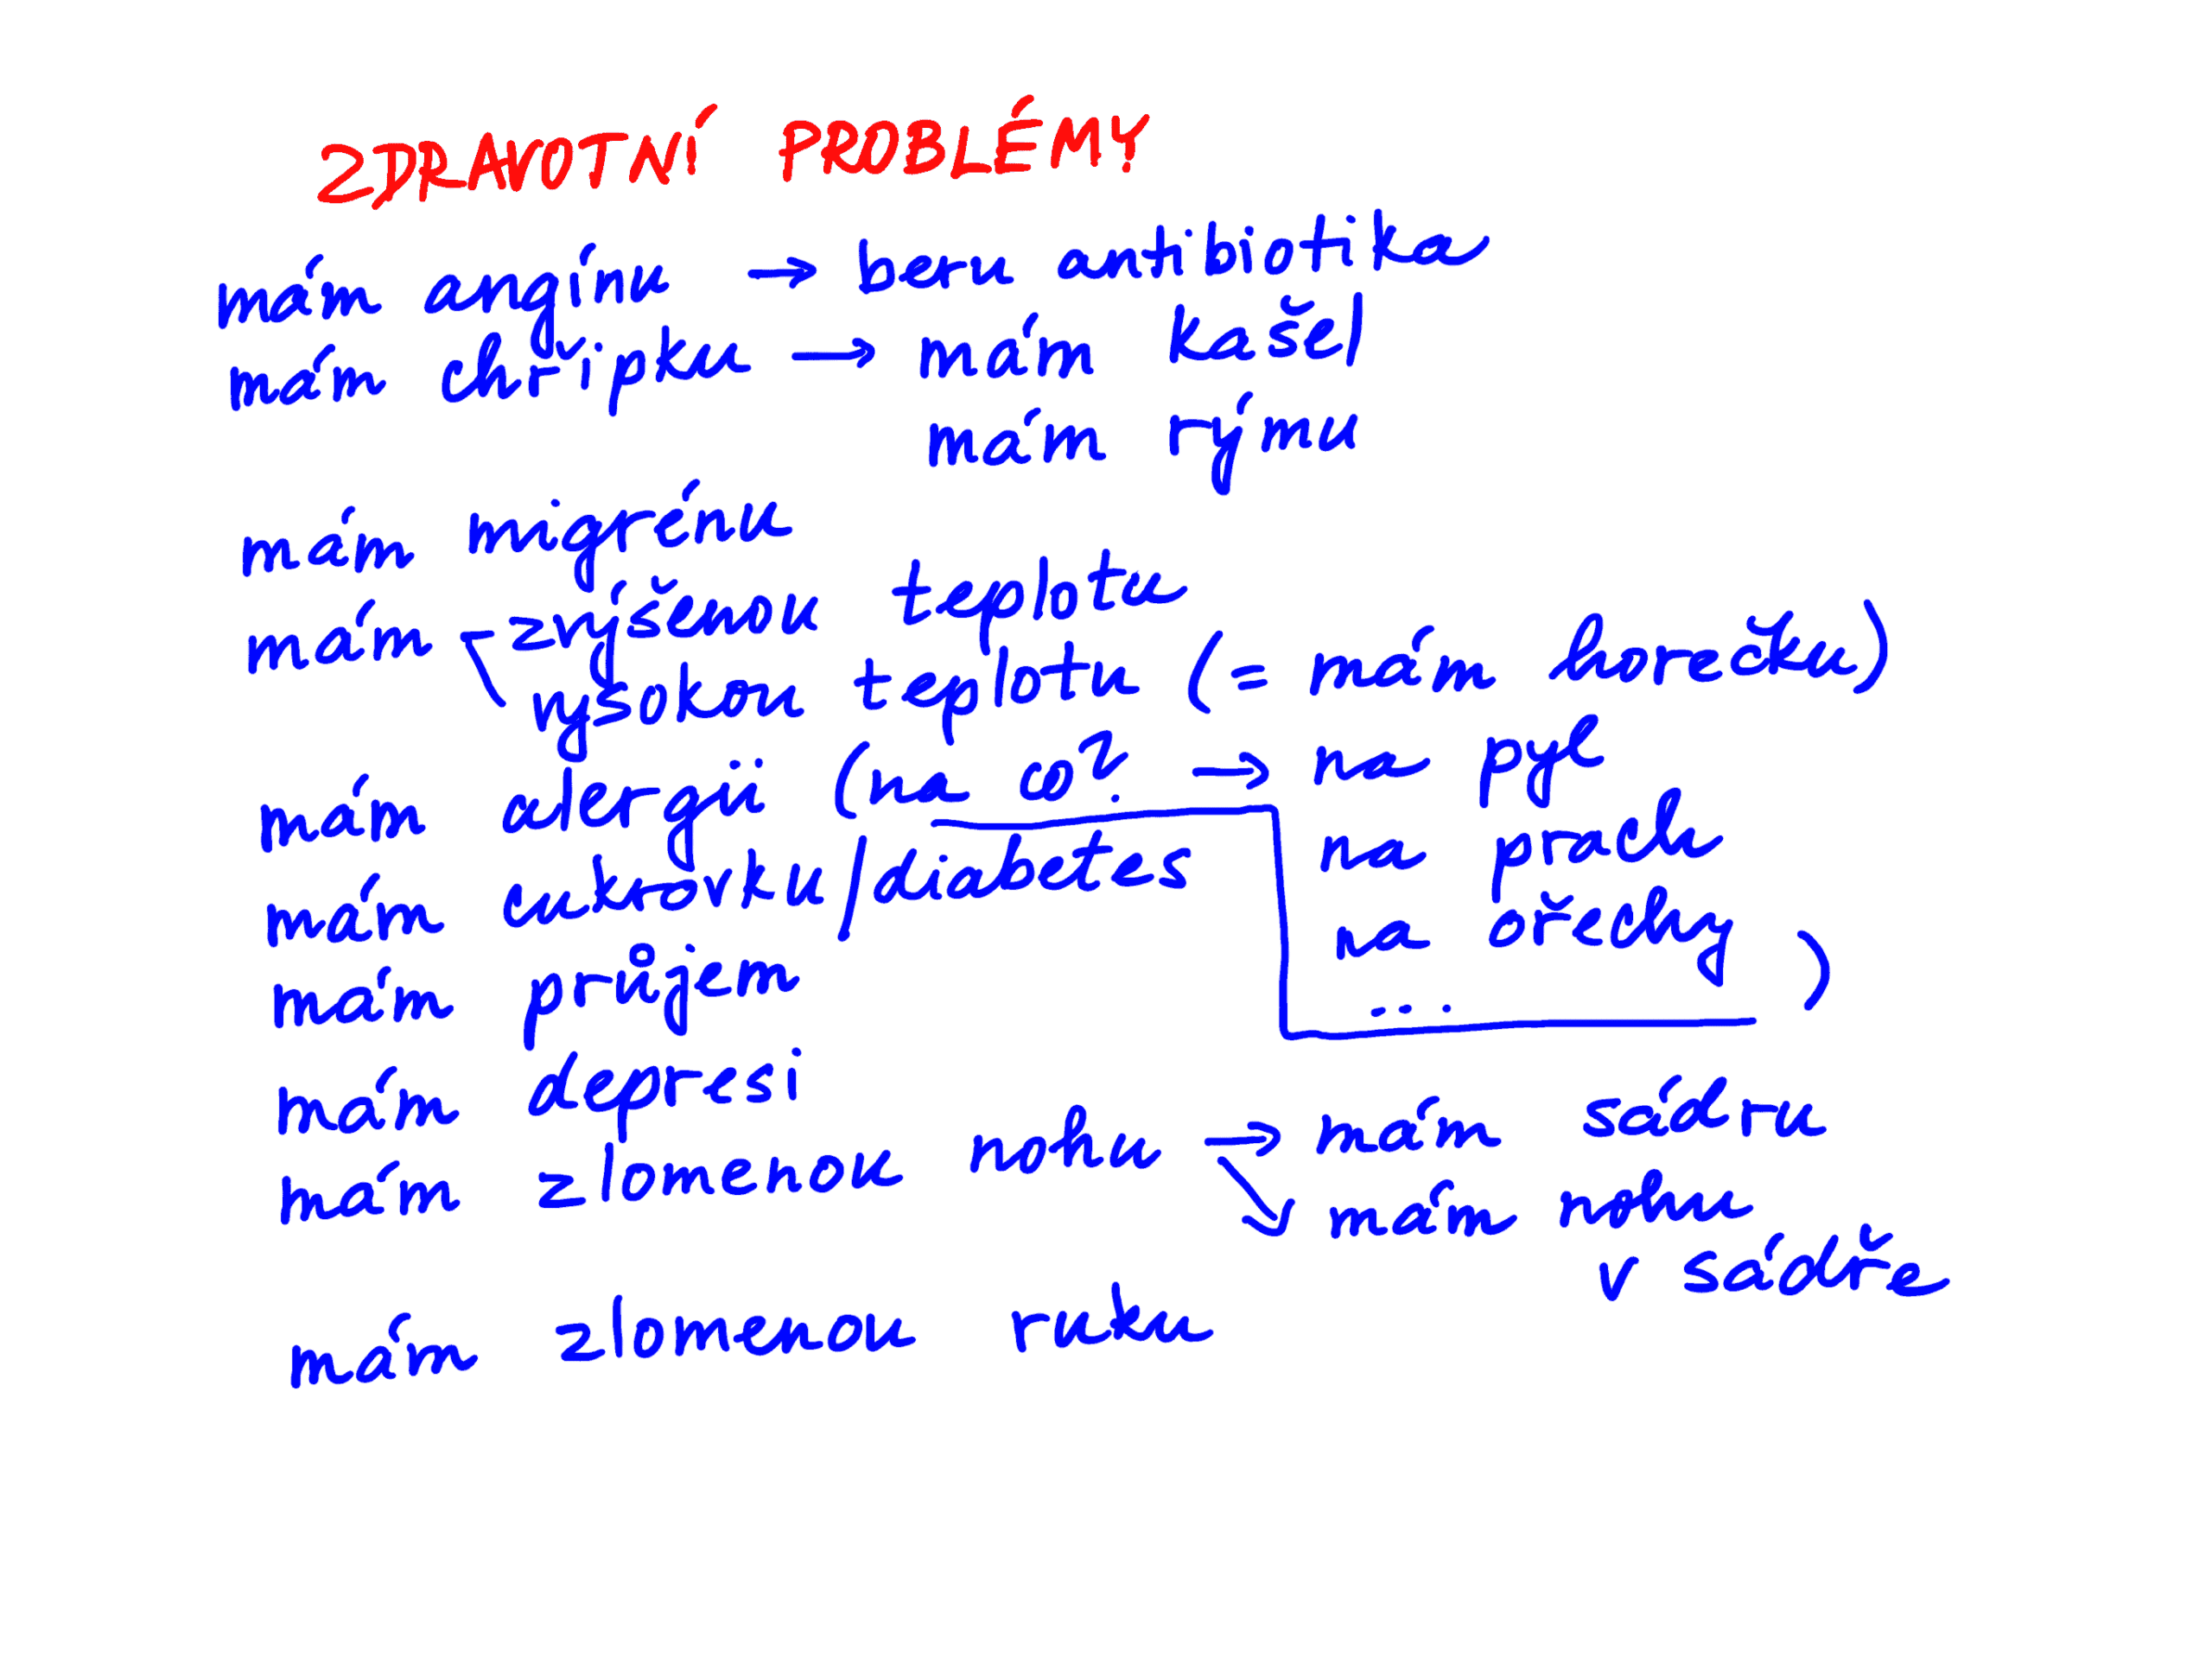 ZDRAVOTNÍ PROBLÉMY
mám angínu → beru antibiotika
mám chřipku → mám kašel
mám rýmu
mám migrénu
mám zvýšenou teplotu
vysokou teplotu (= mám horečku)
mám alergii (na co? → na pyl
na prach
na ořechy
... )
mám cukrovku/diabetes
mám průjem
mám depresi
mám zlomenou nohu → mám sádru
mám nohu
v sádře
mám zlomenou ruku